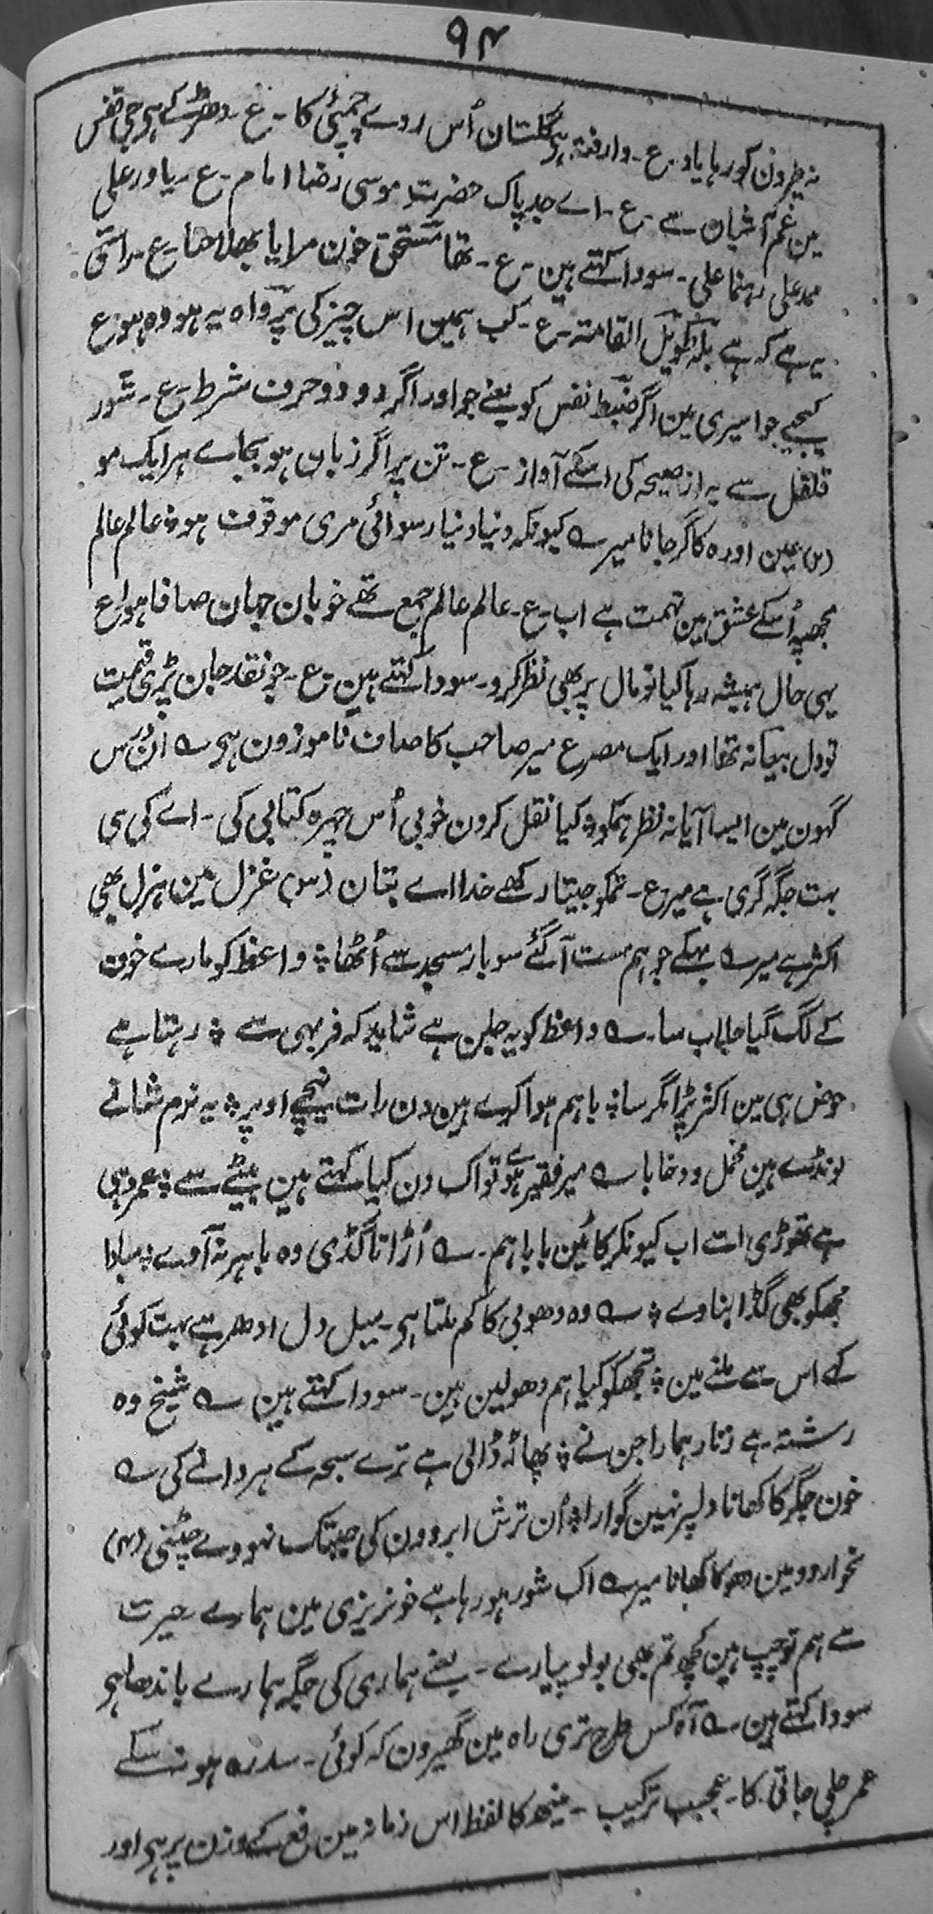 ۹۴
نہ طیرون کو رہا یاد۔ ع۔ وارفتہ ہر گلستان اُس روے چمپئی کا۔ ع۔ دھڑکے ہو جی قفس
مین غم آشیان سے۔ ع۔ اے جد پاک حضرت موسی رضا امام۔ ع۔ یاور علی
مدد علی رہنما علی۔ سودا کہتے ہین۔ ع۔ تھا مستحق خون مرا یا بھلا تھا۔ ع۔ راستی
یہ ہے کہ ہے بلکہ طویل القامتہ۔ ع۔ کب ہمین اس چیز کی پرواہ یہ ہو وہ ہو ع
کیجیے جو اسیری مین اگر ضبط نفس کو یعنے جو اور اگر دو دو حرف شرط۔ ع۔ شور
قلقل سے پر از صیحہ کی اسکے آواز۔ ع۔ تن پر اگر زبان ہو بجاے ہر ایک مو
(س) عین اور ہ کا گر جانا میر؎ کیونکہ دنیا دنیا رسوائی مری موقوف ہو ؞ عالم عالم
مجھپہ اُسکے عشق مین تہمت ہے اب۔ ع۔ عالم عالم جمع تھے خوبان جہان صافا ہوا ع
یہی حال ہمیشہ رہا کیا تو مال پر بھی نظر کرو۔ سودا کہتے ہین۔ ع۔ جو نقد جان پڑی قیمت
تو دل بیعانہ تھا اور ایک مصرع میر صاحب کا صاف نا موزون ہی ؎ اُن نس
گہون مین ایسا آیا نہ نظر ہمکو ؞ کیا نقل کرون خوبی اُس چہرہ کتابی کی۔ اے کی ی
بہت جگہ گری ہے میر ع۔ تمکو جیتا رکھے خدا اے بتان (س) غزل مین ہزل بھی
اکثر ہے میر؎ بہکے جو ہم مست آگئے سو بار مسجد سے اُٹھا ؞ واعظ کو مارے خوف
کے لگ گیا جلاب سا۔ ؎ واعظ کو یہ جلن ہے شاید کہ فربہی سے ؞ رہتا ہے
حوض ہی مین اکثر پڑا مگر سا ؞ باہم ہوا کرے ہین دن رات نیچے اوپر ؞ یہ نرم شانے
لونڈے ہین مخمل و دو خابا ؎ میر فقیر ہوئے تو اک دن کیا کہتے ہین بیٹے سے ؞ عمر رہی
ہے تھوڑی اسے اب کیونکر کاٹین بابا ہم۔ ؎ اُڑاتا گڈی وہ باہر نہ آوے ؞ مبادا
مجھکو بھی گڈا بناوے ؞ ؎ وہ دھوبی کا کم ملتا ہی۔ میل دل ادھر ہے بہت کوئی
کہے اس سے ملنے مین ؞ تجھکو کیا ہم دھولین ہین۔ سودا کہتے ہین ؎ شیخ وہ
رشتہ ہے زنار ہمارا جن نے ؞ پھاند ڈالی ہے ترے سبحہ کے ہر دانے کی ؎
خون جگر کا کھانا دلپر نہین گوارا ؞ اُن ترش ابروون کی جبتک نہووے چٹنی (س)
نحوار دو مین دھوکا کھانا میر؎ اک شور ہو رہا ہے خونریزی مین ہمارے حیرت
سے ہم تو چپ ہین کچھ تم بھی بولو پیارے۔ یعنے ہماری کی جگہ ہمارے باندھا ہی
سودا کہتے ہین ؎ آہ کس طرح تری راہ مین گھیرون کہ کوئی۔ سدرہ ہو نسکے
عمر چلی جاتی کا۔ عجیب ترکیب۔ مینھ کا لفظ اس زمانہ مین رفع کے وزن پر ہی اور